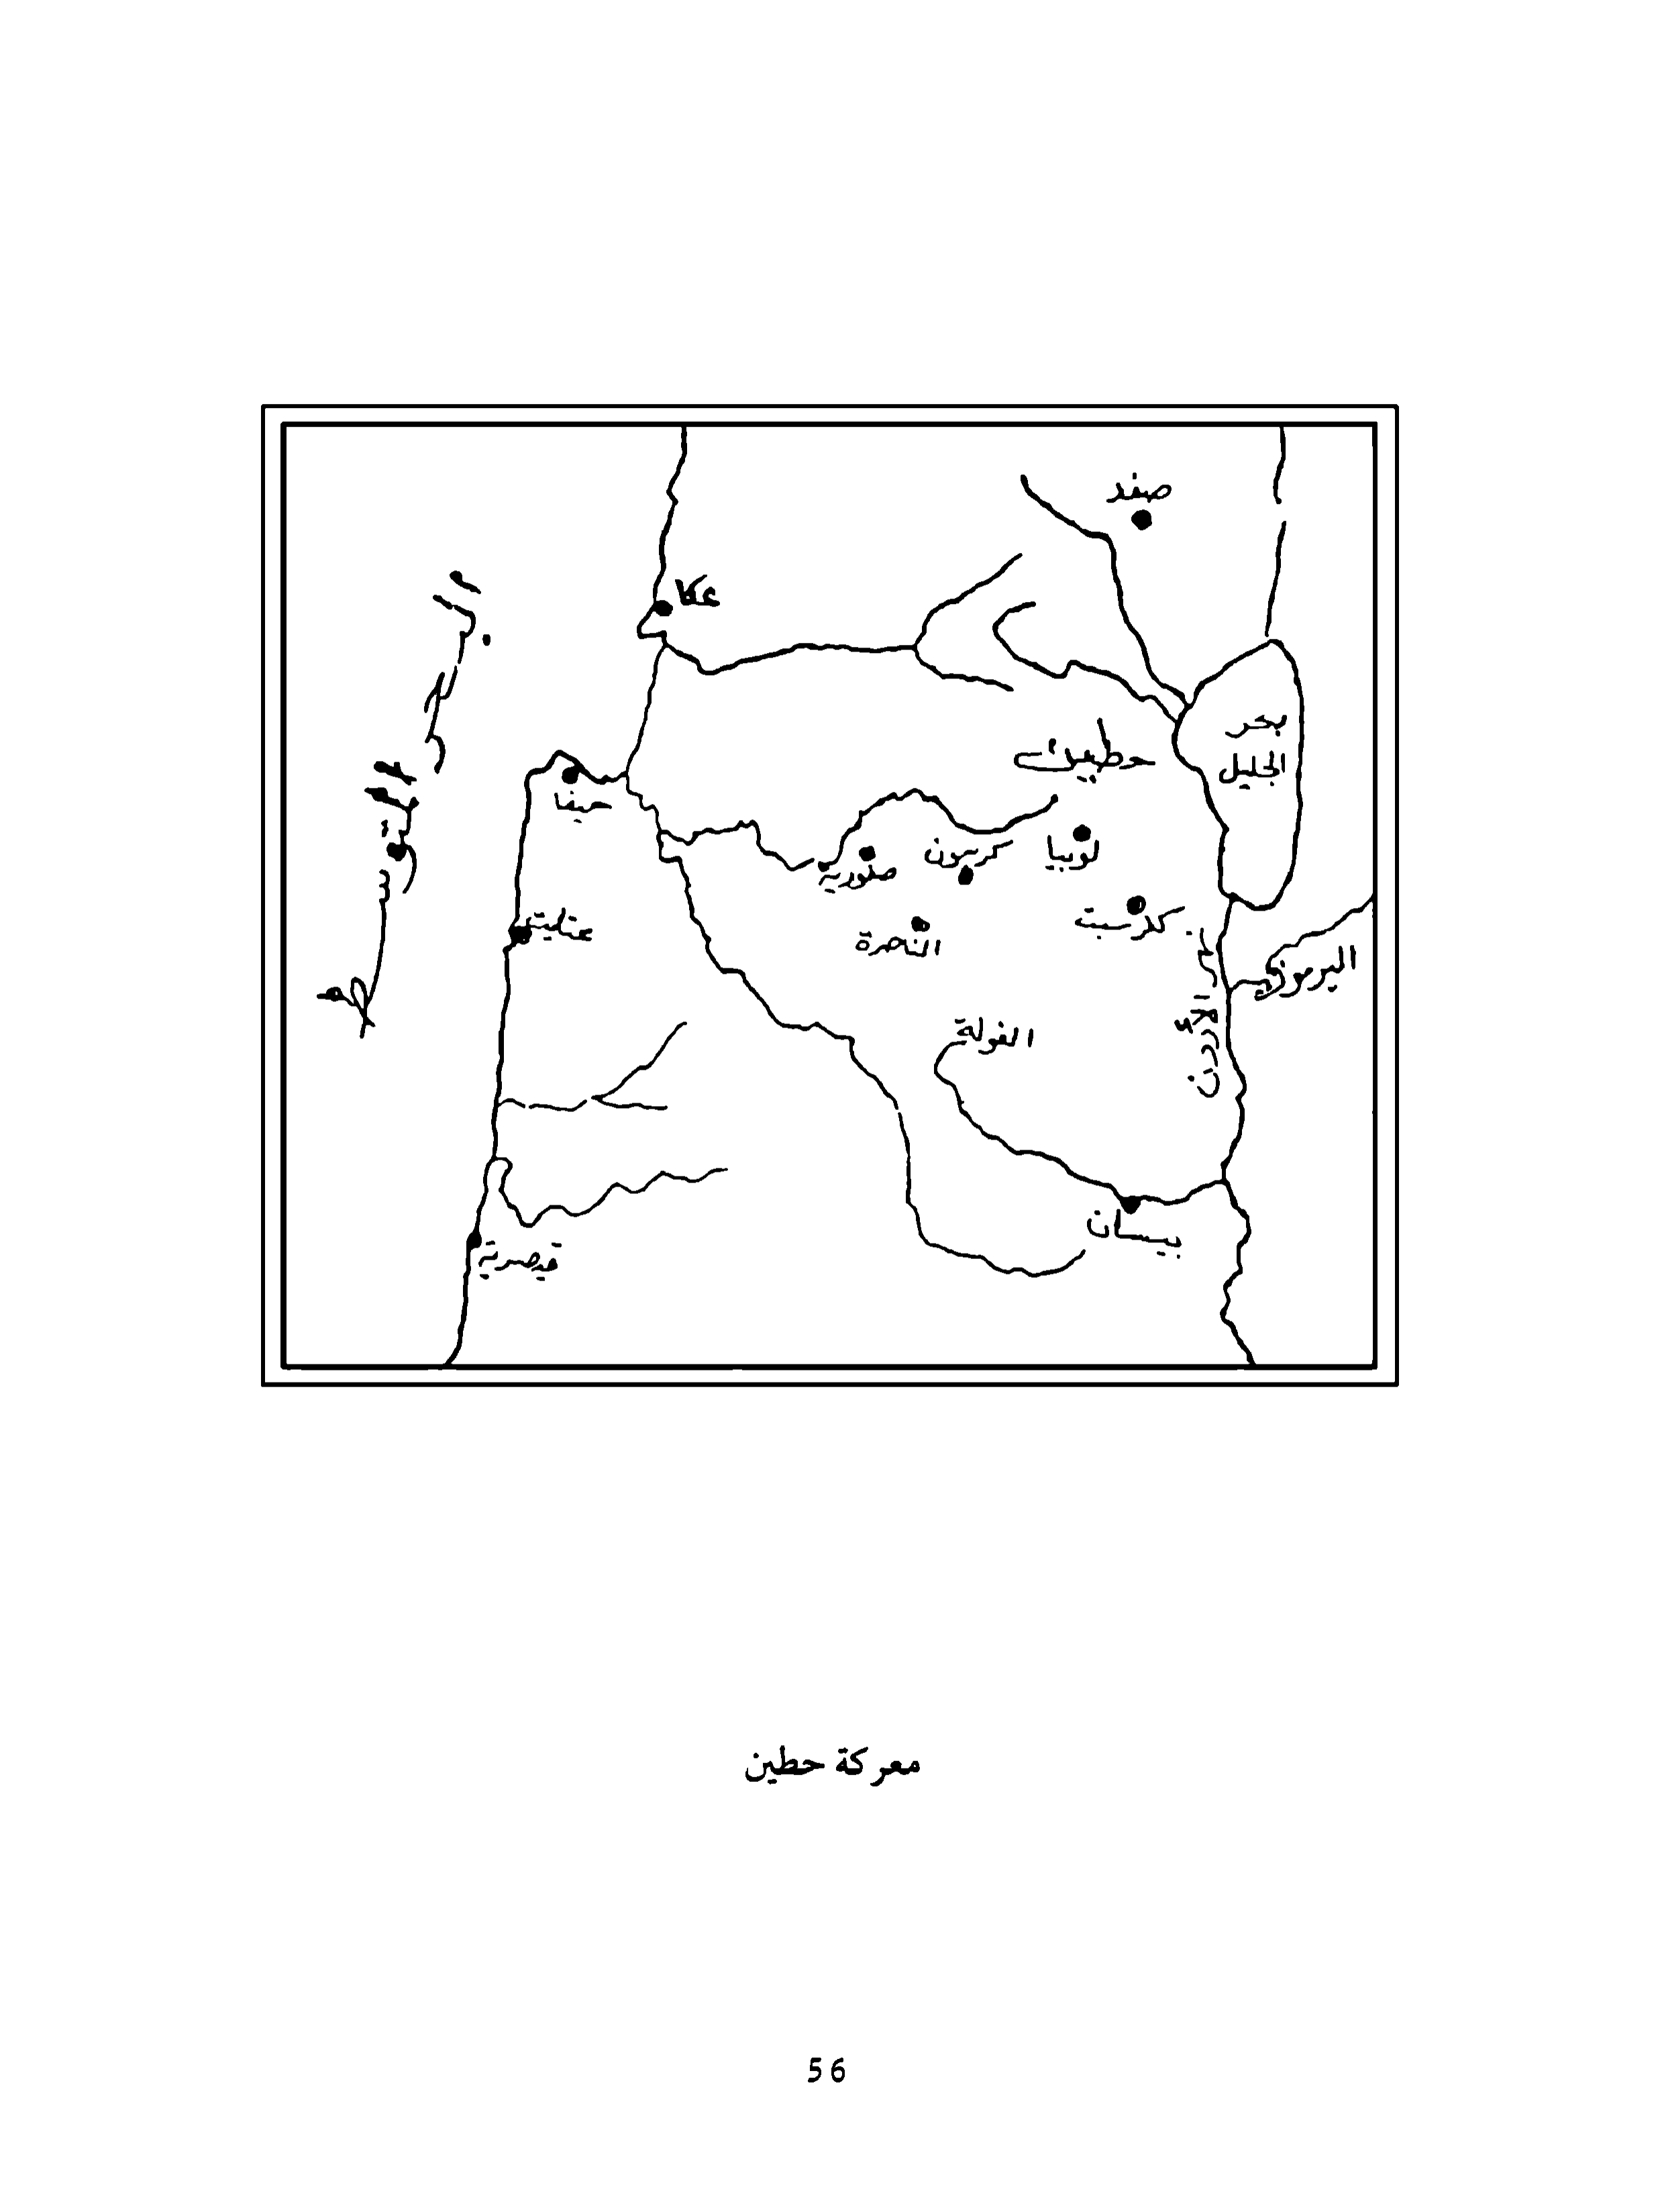 صفد
عكا
بحر
الجليل
حطين
حيفا
لوبيا
صفورية
عتليت
الناصرة
اليرموك
الفولة
بيسان
قيصرية
معركة حطين
56